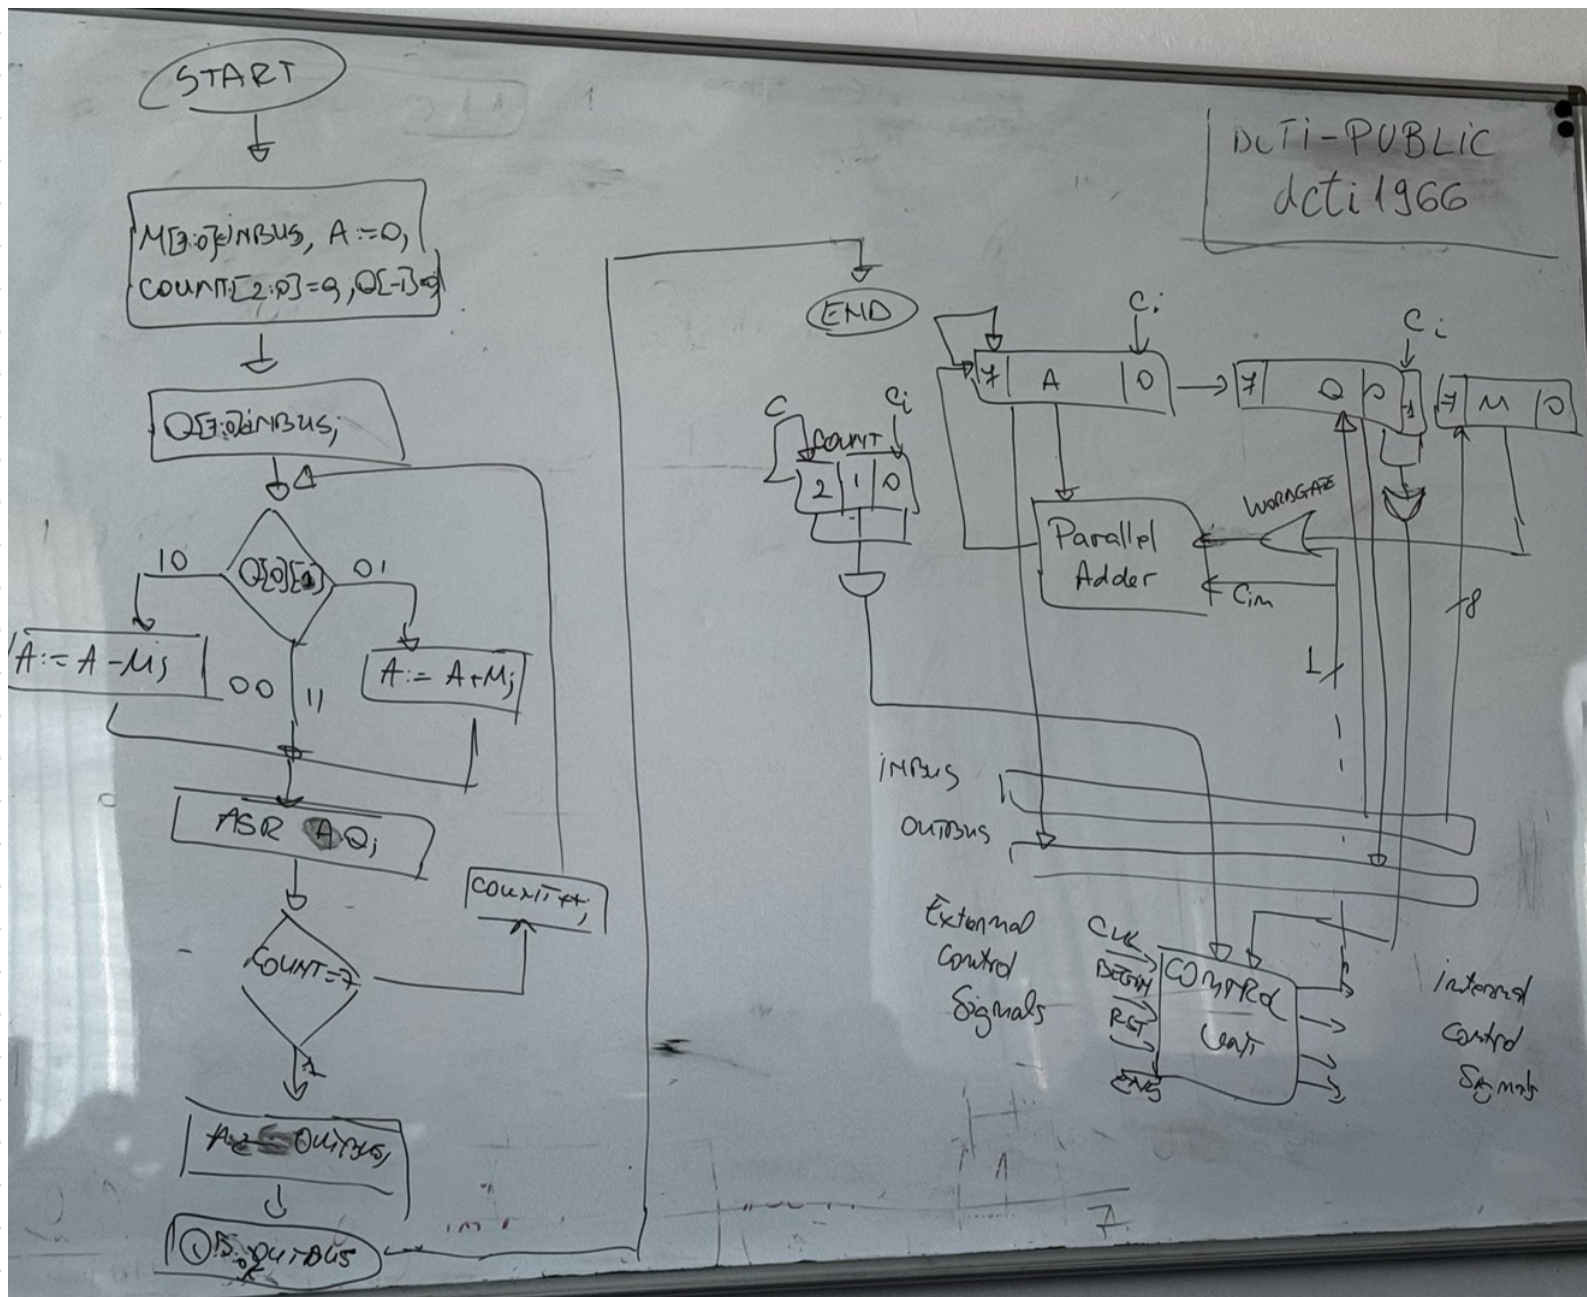 START
M[7:0]:=INBUS, A:=0,
COUNT[2:0]=0, Q[-1]=0
Q[7:0]:=INBUS;
Q[0][-1]
10
01
A:= A-M;
00
11
A:= A+M;
ASR AQ;
COUNT++;
COUNT=7
1
OUTBUS,
OUTBUS
END
DCTI-PUBLIC
dcti1966
C
Ci
COUNT
2 1 0
Ci
7 A 0
Ci
7 Q 0 -1
7 M 0
WORDGATE
Parallel
Adder
Cin
8
1
INBUS
OUTBUS
External
Control
Signals
CLK
BEGIN
RST
END
CONTROL
Unit
internal
control
Signals
7